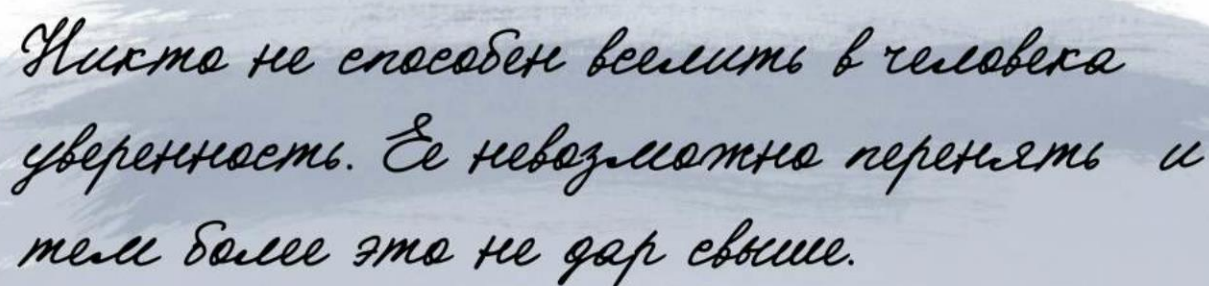 Никто не способен вселить в человека
уверенность. Ее невозможно перенять и
тем более это не дар свыше.